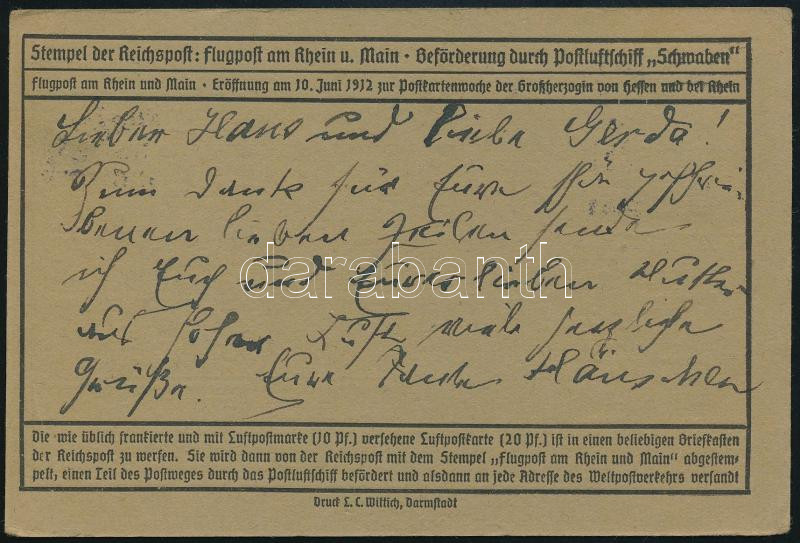 Stempel der Reichspost: Flugpost am Rhein u. Main · Beförderung durch Postluftschiff „Schwaben“
Flugpost am Rhein und Main · Eröffnung am 10. Juni 1912 zur Postkartenwoche der Großherzogin von Hessen und bei Rhein
Lieber Hans und liebe Gerda!
Zum Dank für Eure schön geschrie-
benen lieben Zeilen sende
ich Euch und Eurer lieben Mutter
aus hoher Luft viele herzliche
Grüße. Eure Tante Hänschen
darabanth
Die wie üblich frankierte und mit Luftpostmarke (10 Pf.) versehene Luftpostkarte (20 Pf.) ist in einen beliebigen Briefkasten
der Reichspost zu werfen. Sie wird dann von der Reichspost mit dem Stempel „Flugpost am Rhein und Main“ abgestem-
pelt, einen Teil des Postweges durch das Postluftschiff befördert und alsdann an jede Adresse des Weltpostverkehrs versandt
Druck L. C. Wittich, Darmstadt